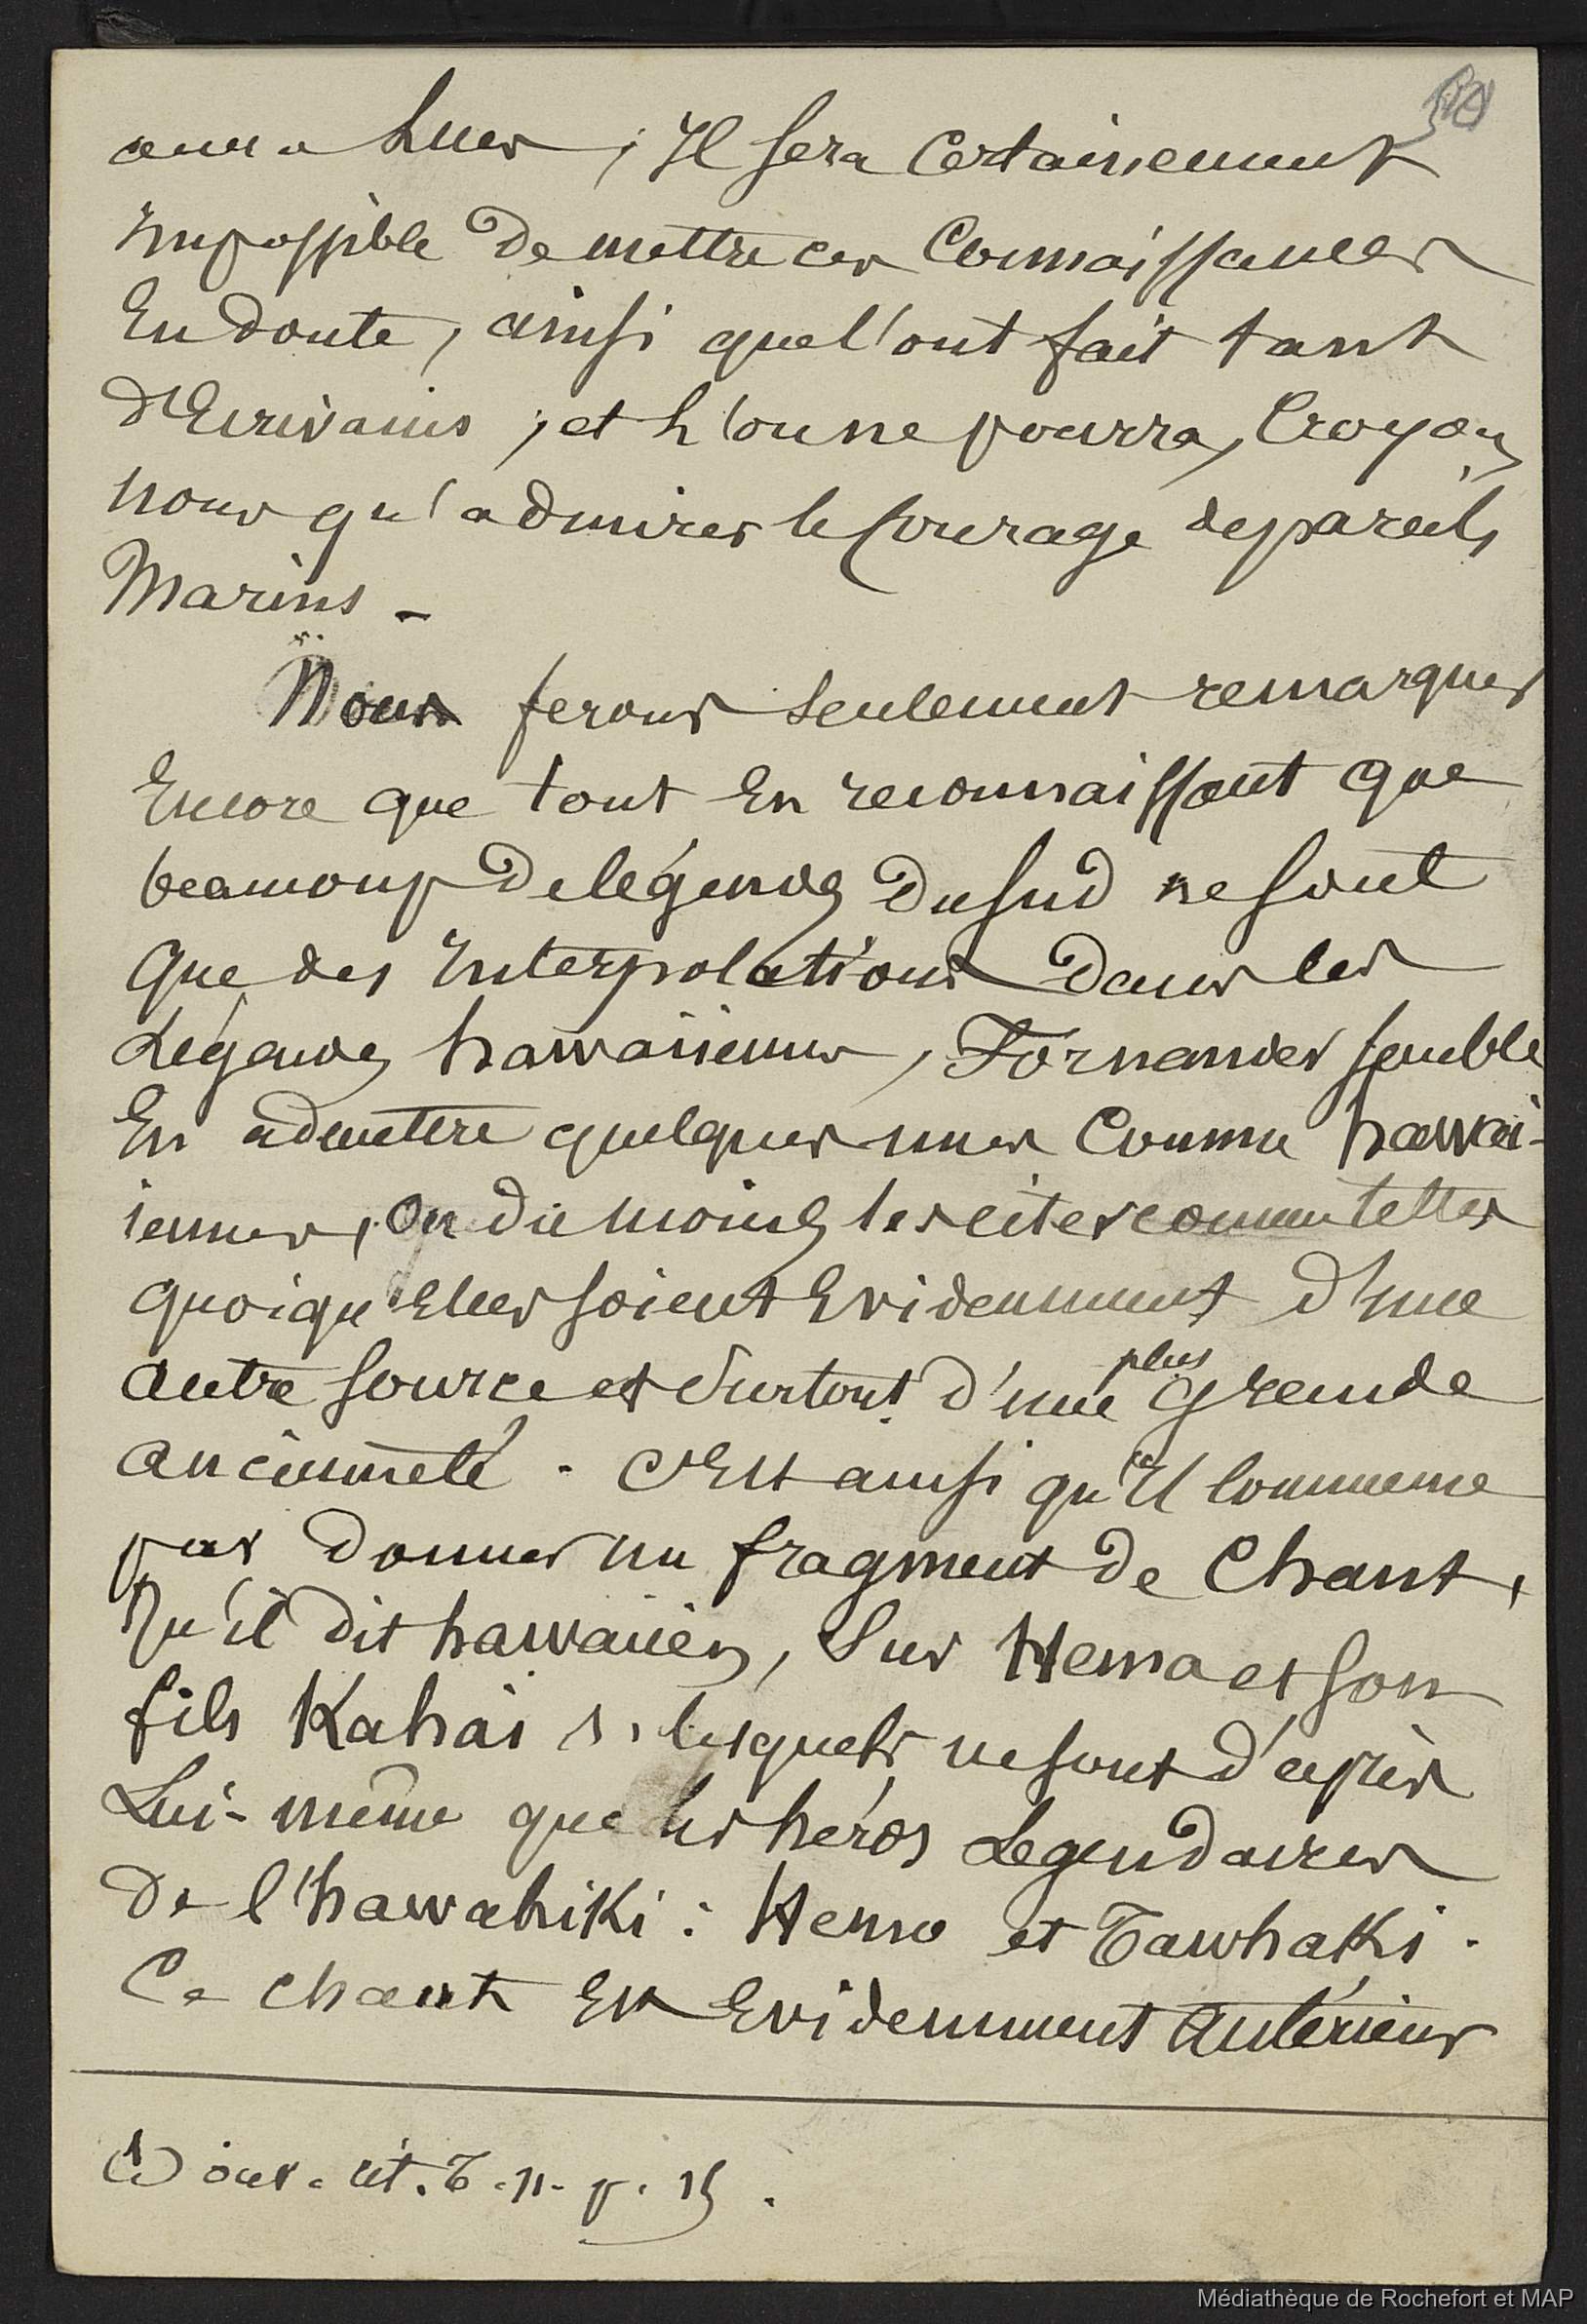 aura lues, Il sera Certainement
impossible de mettre ces Connaissances
En doute, ainsi que l'ont fait tant
d'Ecrivains, et l'on ne pourra, Croyons
nous qu'admirer le Courage de pareils
Marins -
Nous ferons seulement remarquer
Encore que tout En reconnaissant que
beaucoup de légendes du sud ne sont
que des Interpolations dans les
Légendes hawaiiennes, Fornander semble
En admettre quelques unes Comme hawai-
iennes, ou du moins les citer comme telles
quoiqu'elles soient Evidemment d'une
autre source et surtout d'une plus grande
ancienneté. C'Est ainsi qu'Il Commence
par donner un fragment de Chant,
qu'il dit hawaiien, Sur Hema et son
fils Kahai 1. lesquels ne sont d'après
Lui-même que les héros Légendaires
de l'hawahiki : Hema et Tawhaki.
Ce chant Est Evidemment antérieur
(1) ouv. cit. T. II. p. 15.
Médiathèque de Rochefort et MAP